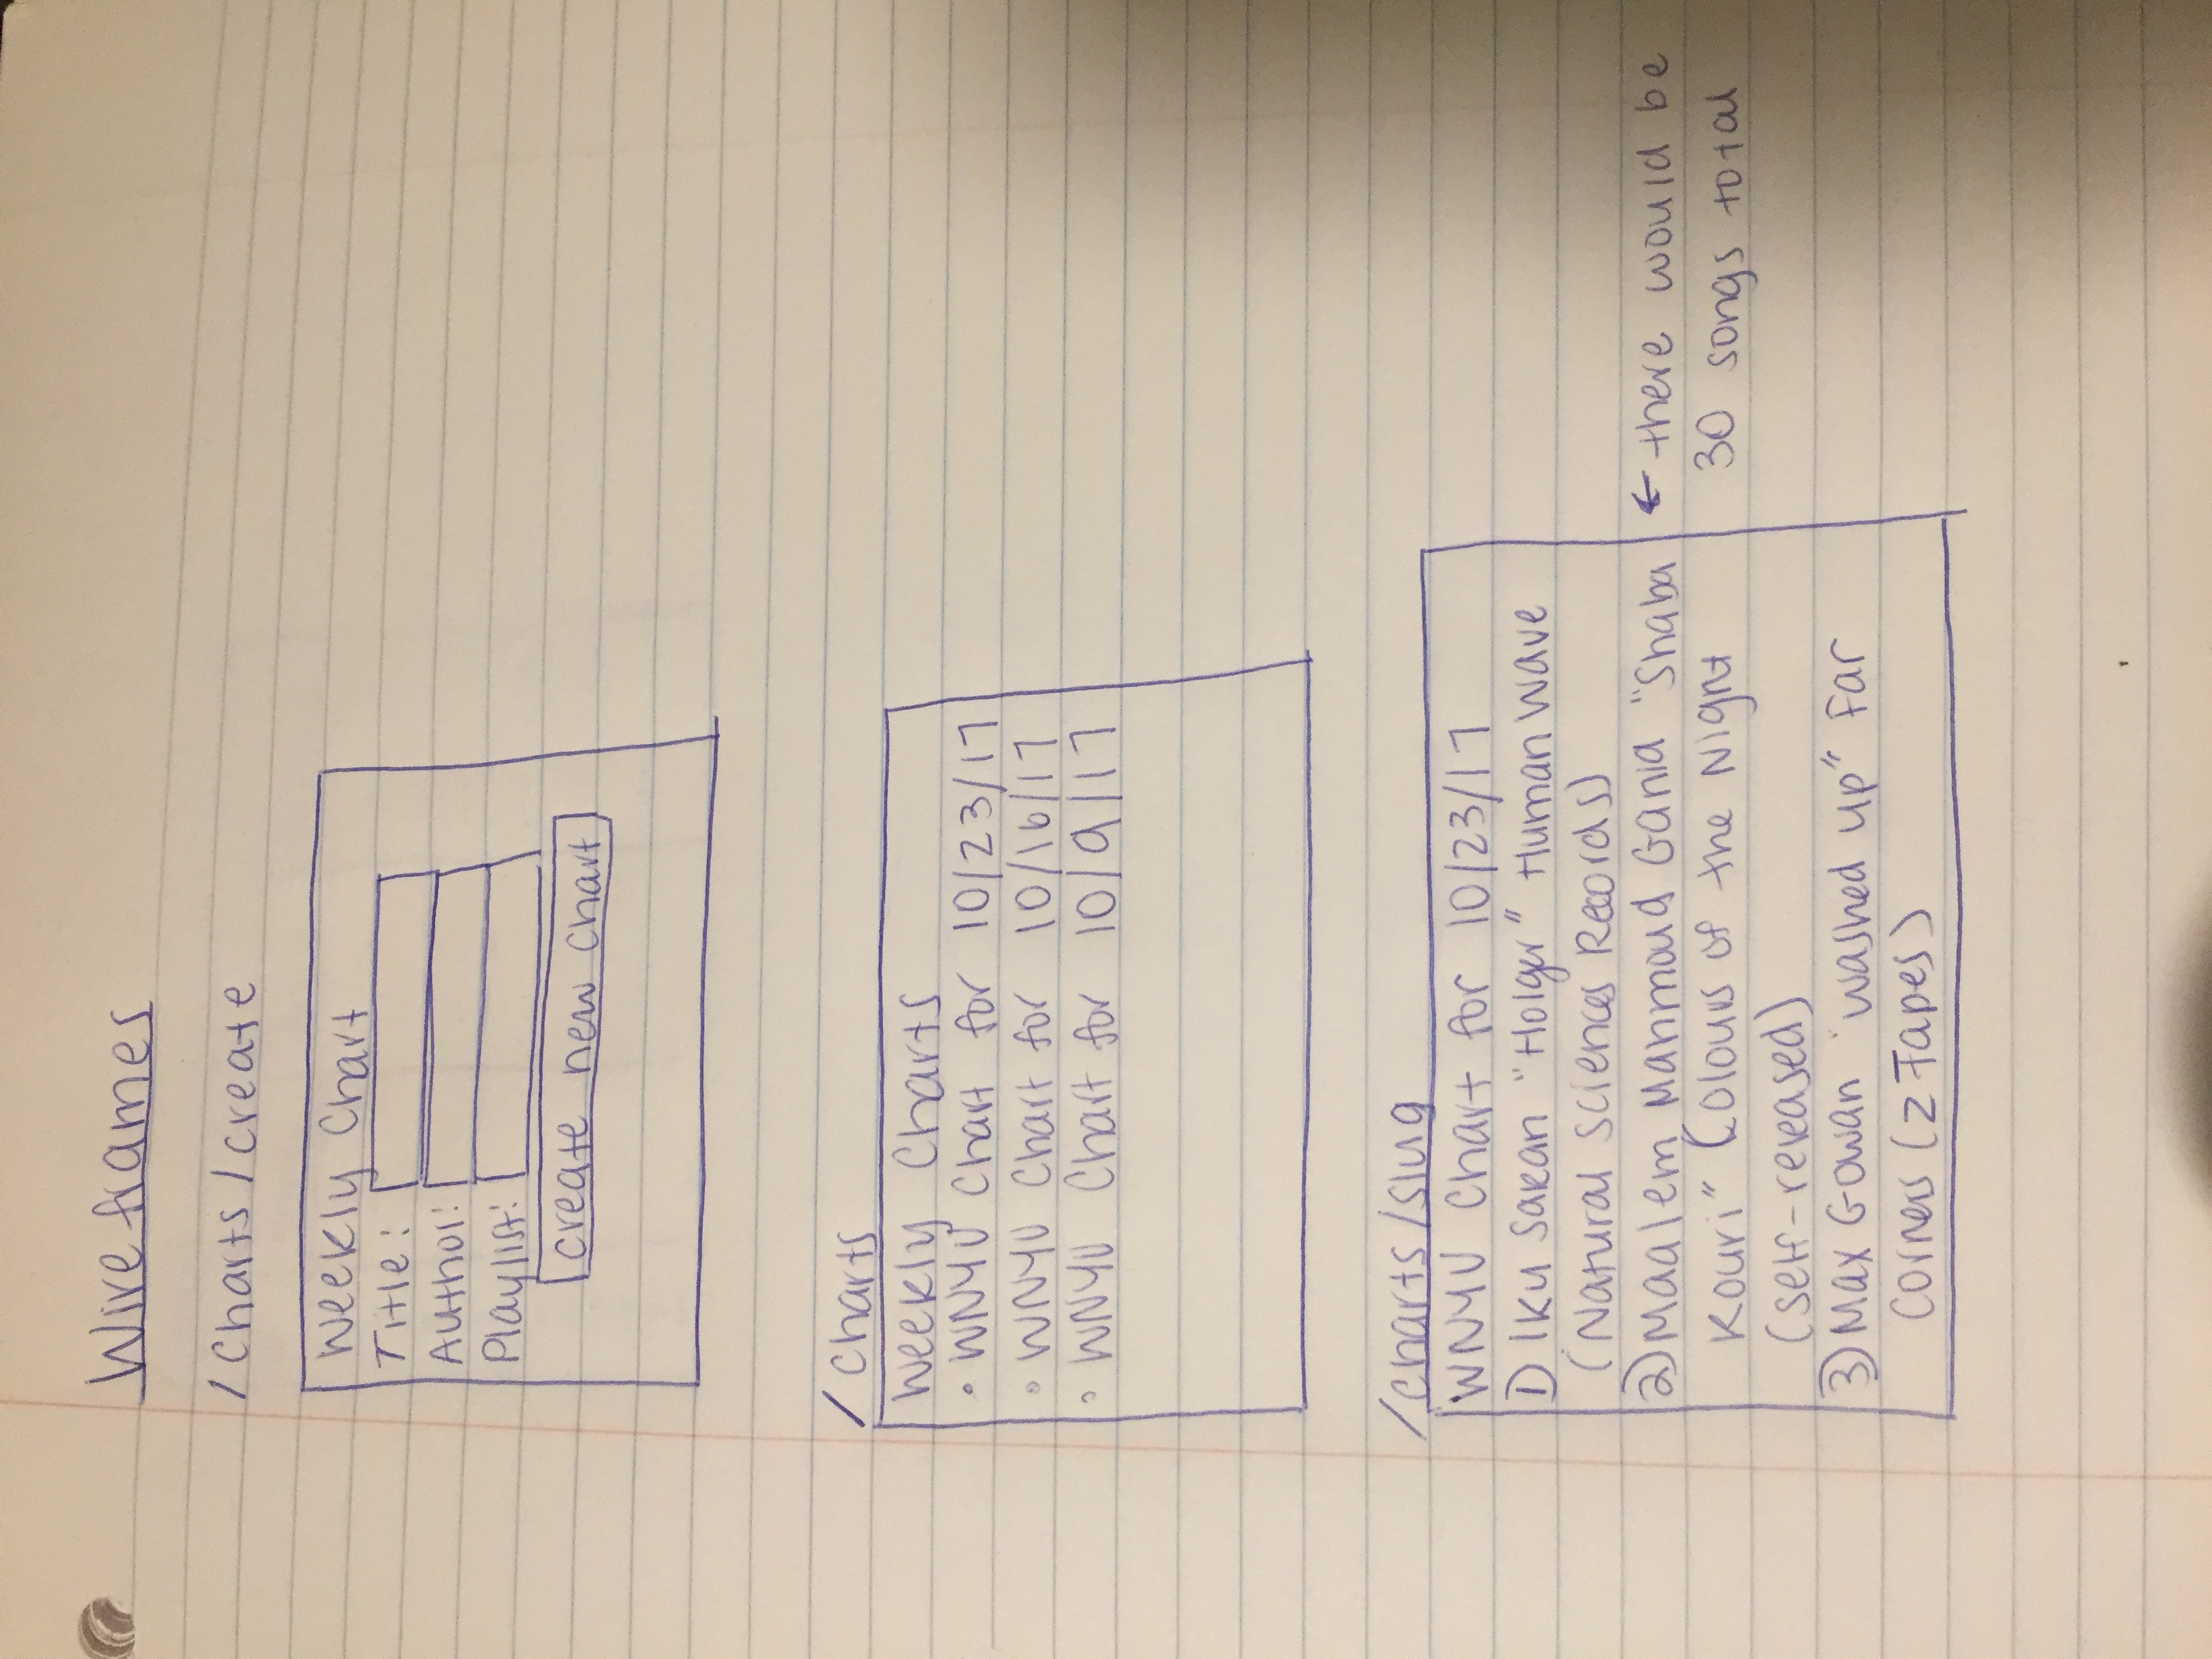 Wireframes
/Charts/create
Weekly Chart
Title:
Author:
Playlist:
create new chart
/Charts
Weekly Charts
• WNYU Chart for 10/23/17
• WNYU Chart for 10/16/17
• WNYU Chart for 10/9/17
/charts/slug
WNYU Chart for 10/23/17
1) Iku Sakan "Holger" Human Wave
(Natural Sciences Records)
2) Maalem Mahmoud Gania "Shaba
Kouri" Colours of the Night
(self-released)
← there would be
30 songs total
3) Max Gowan "washed up" Far
Corners (Z Tapes)